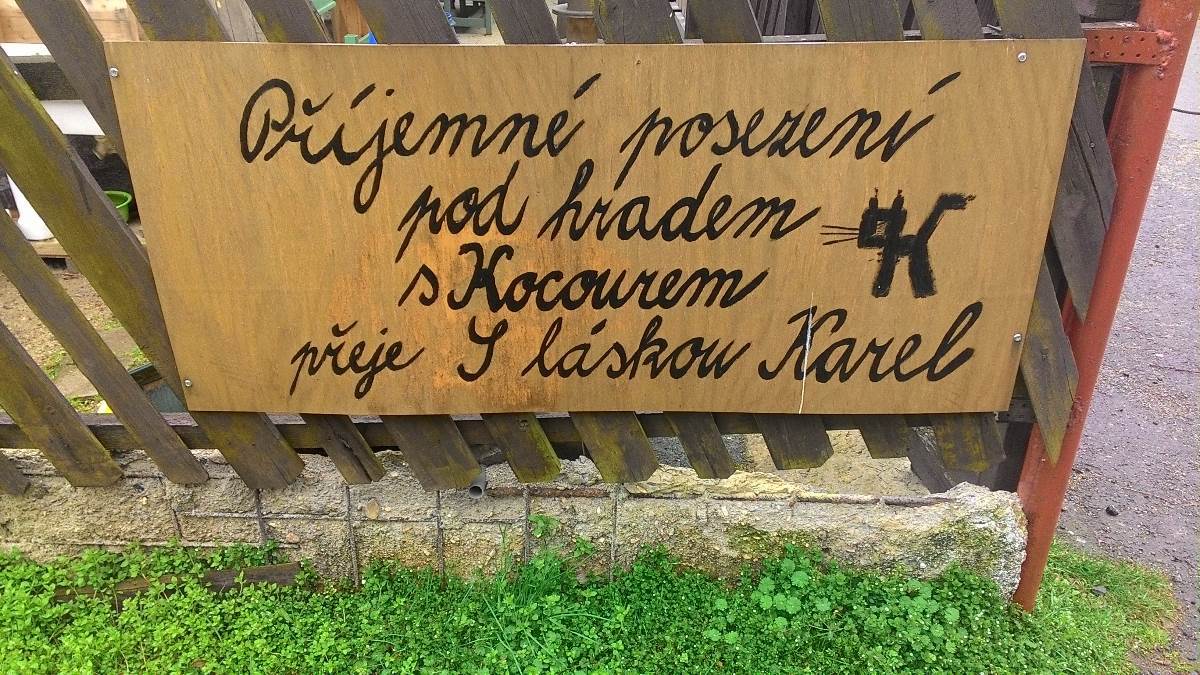 Příjemné posezení
pod hradem
s Kocourem
přeje S láskou Karel